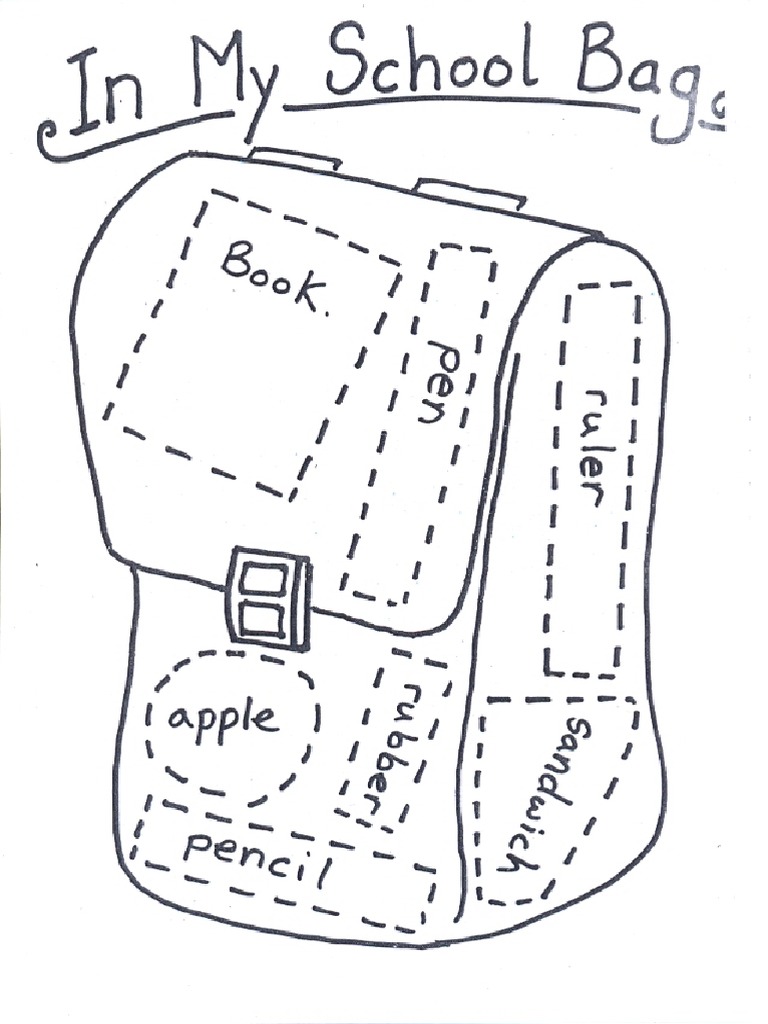 In My School Bag
Book.
pen
ruler
apple
rubber
sandwich
pencil